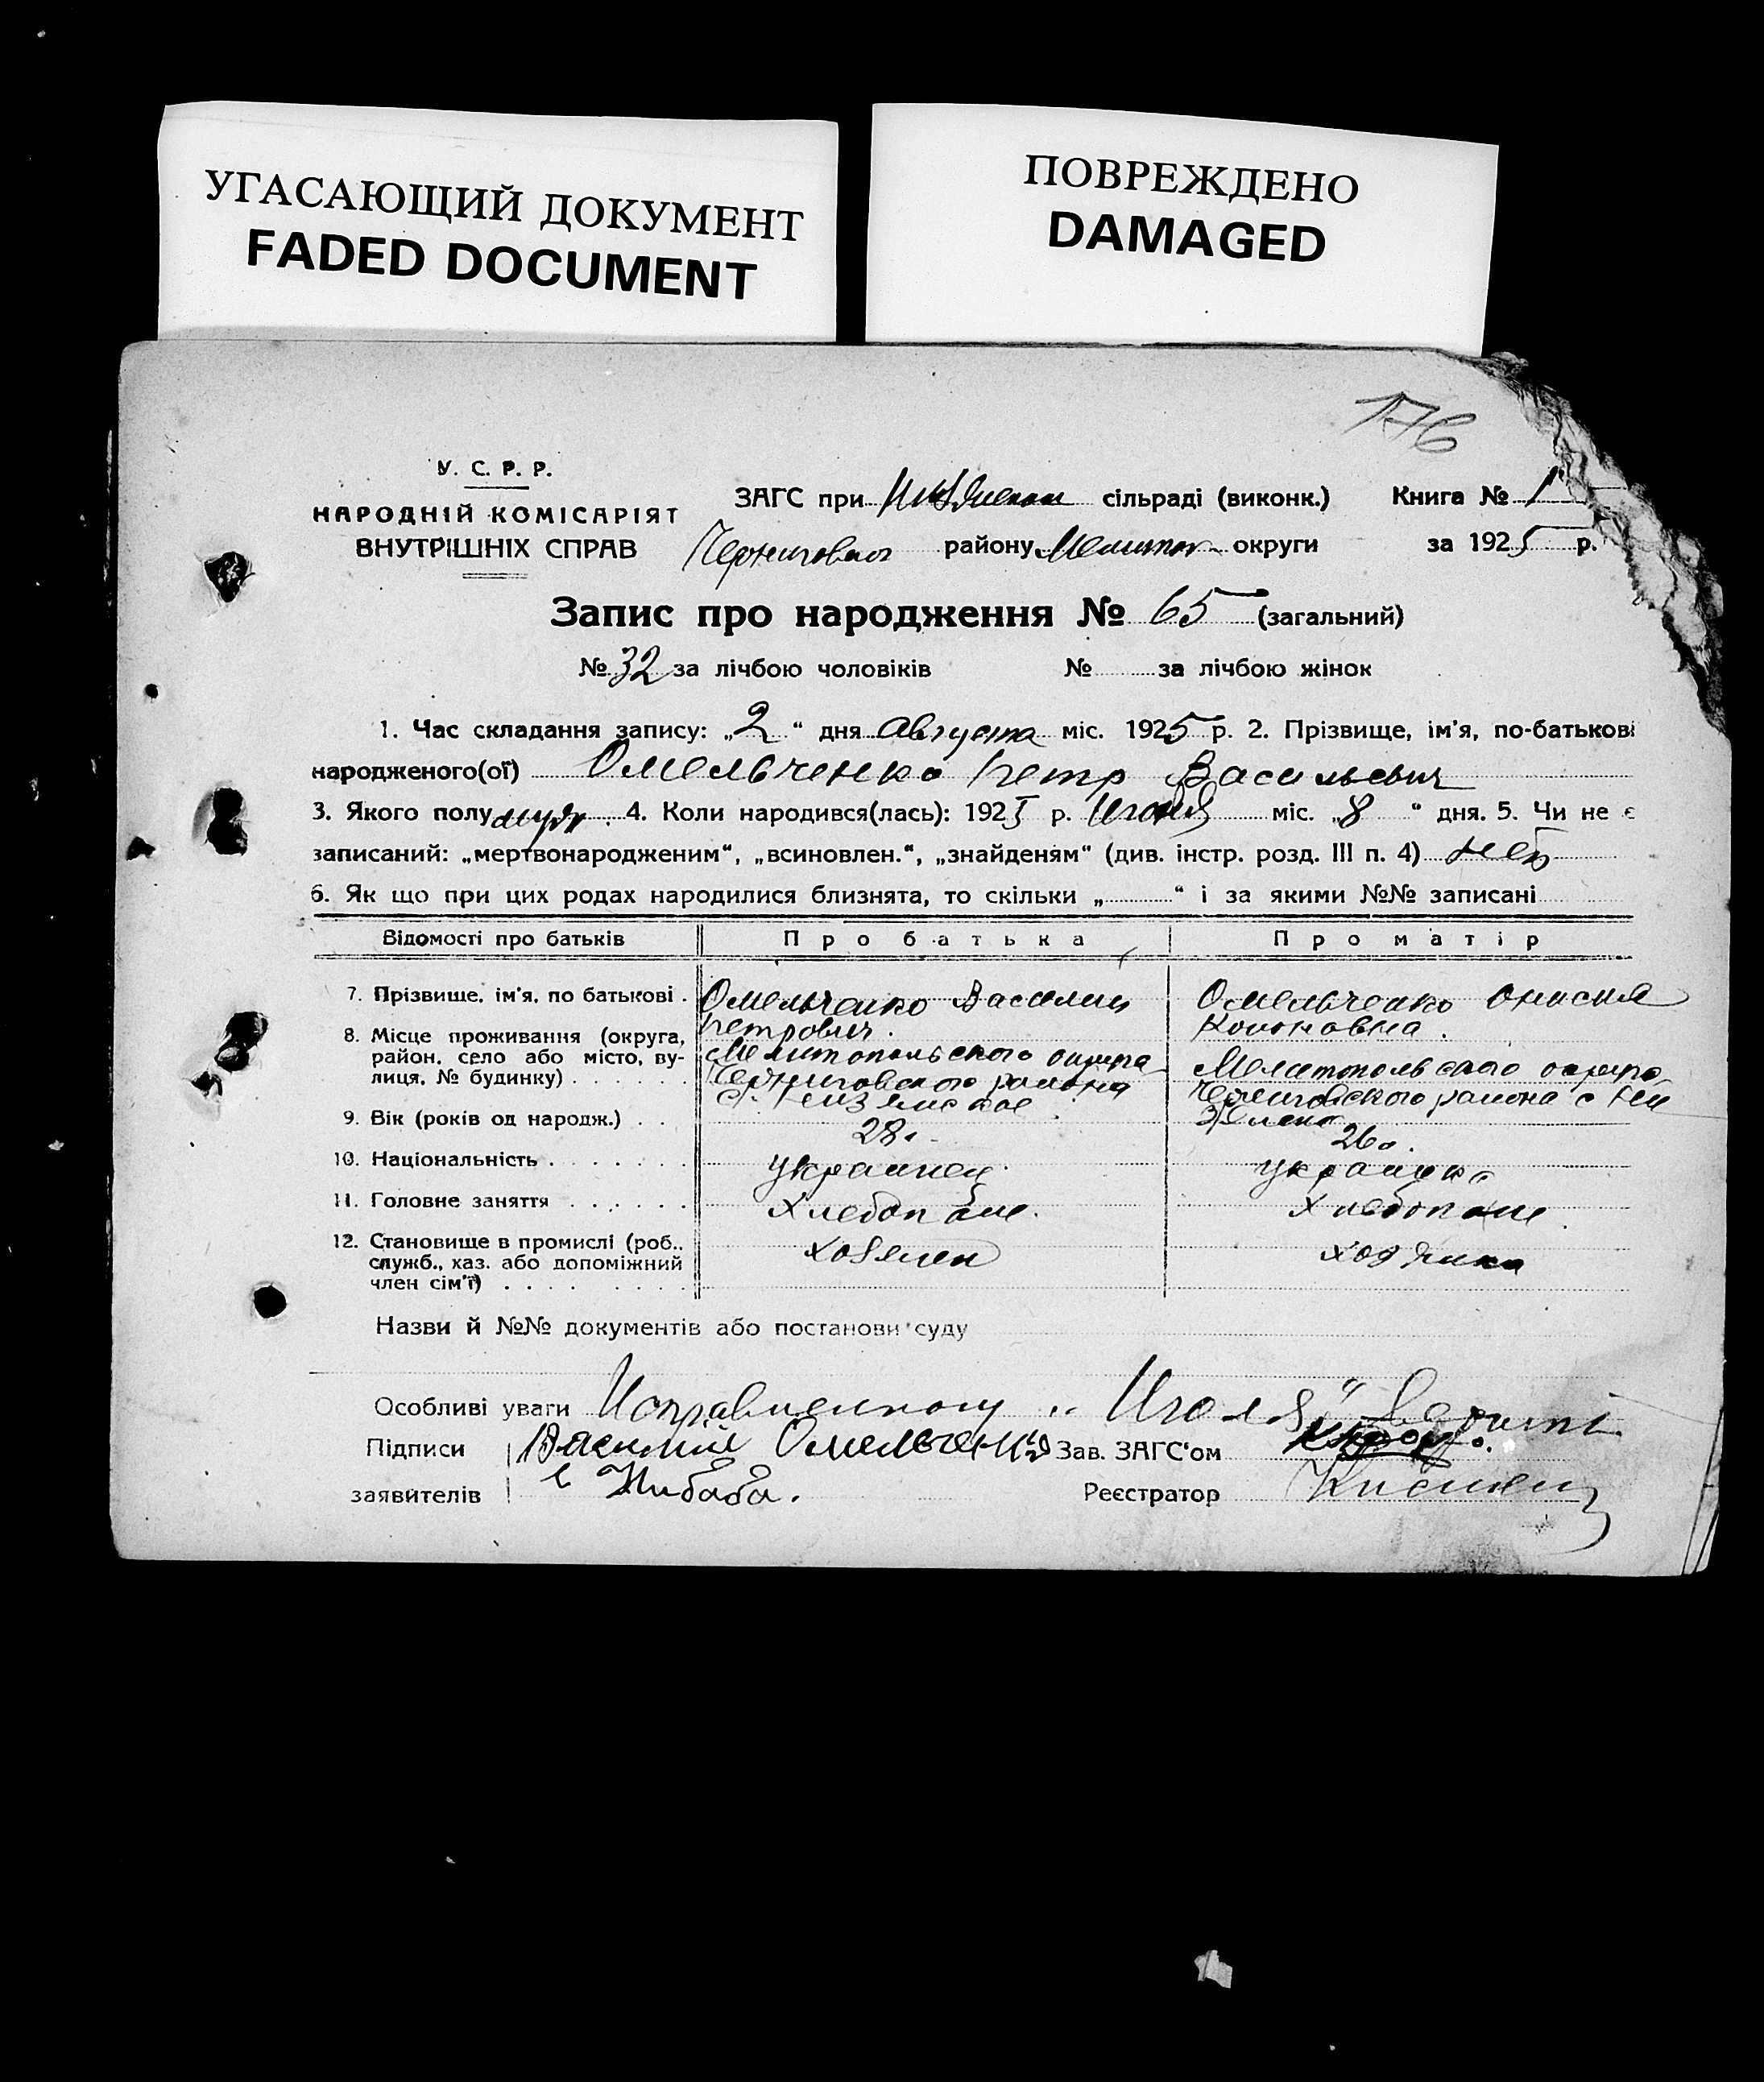 УГАСАЮЩИЙ ДОКУМЕНТ
FADED DOCUMENT
ПОВРЕЖДЕНО
DAMAGED
176
У. С. Р. Р.
НАРОДНІЙ КОМІСАРІЯТ
ВНУТРІШНІХ СПРАВ
ЗАГС при сільраді (виконк.) Книга № 1
Черниговск району Мелитоп округи за 1925 р.
Запис про народження № 65 (загальний)
№ 32 за лічбою чоловіків № за лічбою жінок
1. Час складання запису: „2“ дня Августа міс. 1925 р. 2. Прізвище, ім'я, по-батькові
народженого(ої) Омельченко Петр Васильевич
3. Якого полу муж. 4. Коли народився(лась): 1925 р. Июля міс. „8“ дня. 5. Чи не є
записаний: „мертвонародженим“, „всиновлен.“, „знайденям“ (див. інстр. розд. III п. 4) нет
6. Як що при цих родах народилися близнята, то скільки „ “ і за якими №№ записані
Відомості про батьків Про батька Про матір
7. Прізвище, ім'я, по батькові . Омельченко Василий Омельченко Онисия
Петрович. Кононовна.
8. Місце проживання (округа, Мелитопольского округа Мелитопольского округа
район, село або місто, ву- Черниговского района Черниговского района с
лиця, № будинку) . . . . . . с.
9. Вік (років од народж.) . . 28. 26.
10. Національність . . . . . . . украинец украинка
11. Головне заняття . . . . . . Хлебопаш. Хлебопаш
12. Становище в промислі (роб., хозяин хозяйка
служб., хаз. або допоміжний
член сім'ї) . . . . . . . .
Назви й №№ документів або постанови суду
Особливі уваги Исправленному „Июля“ верить
Підписи Василий Омельченко Зав. ЗАГС'ом
заявителів Реєстратор